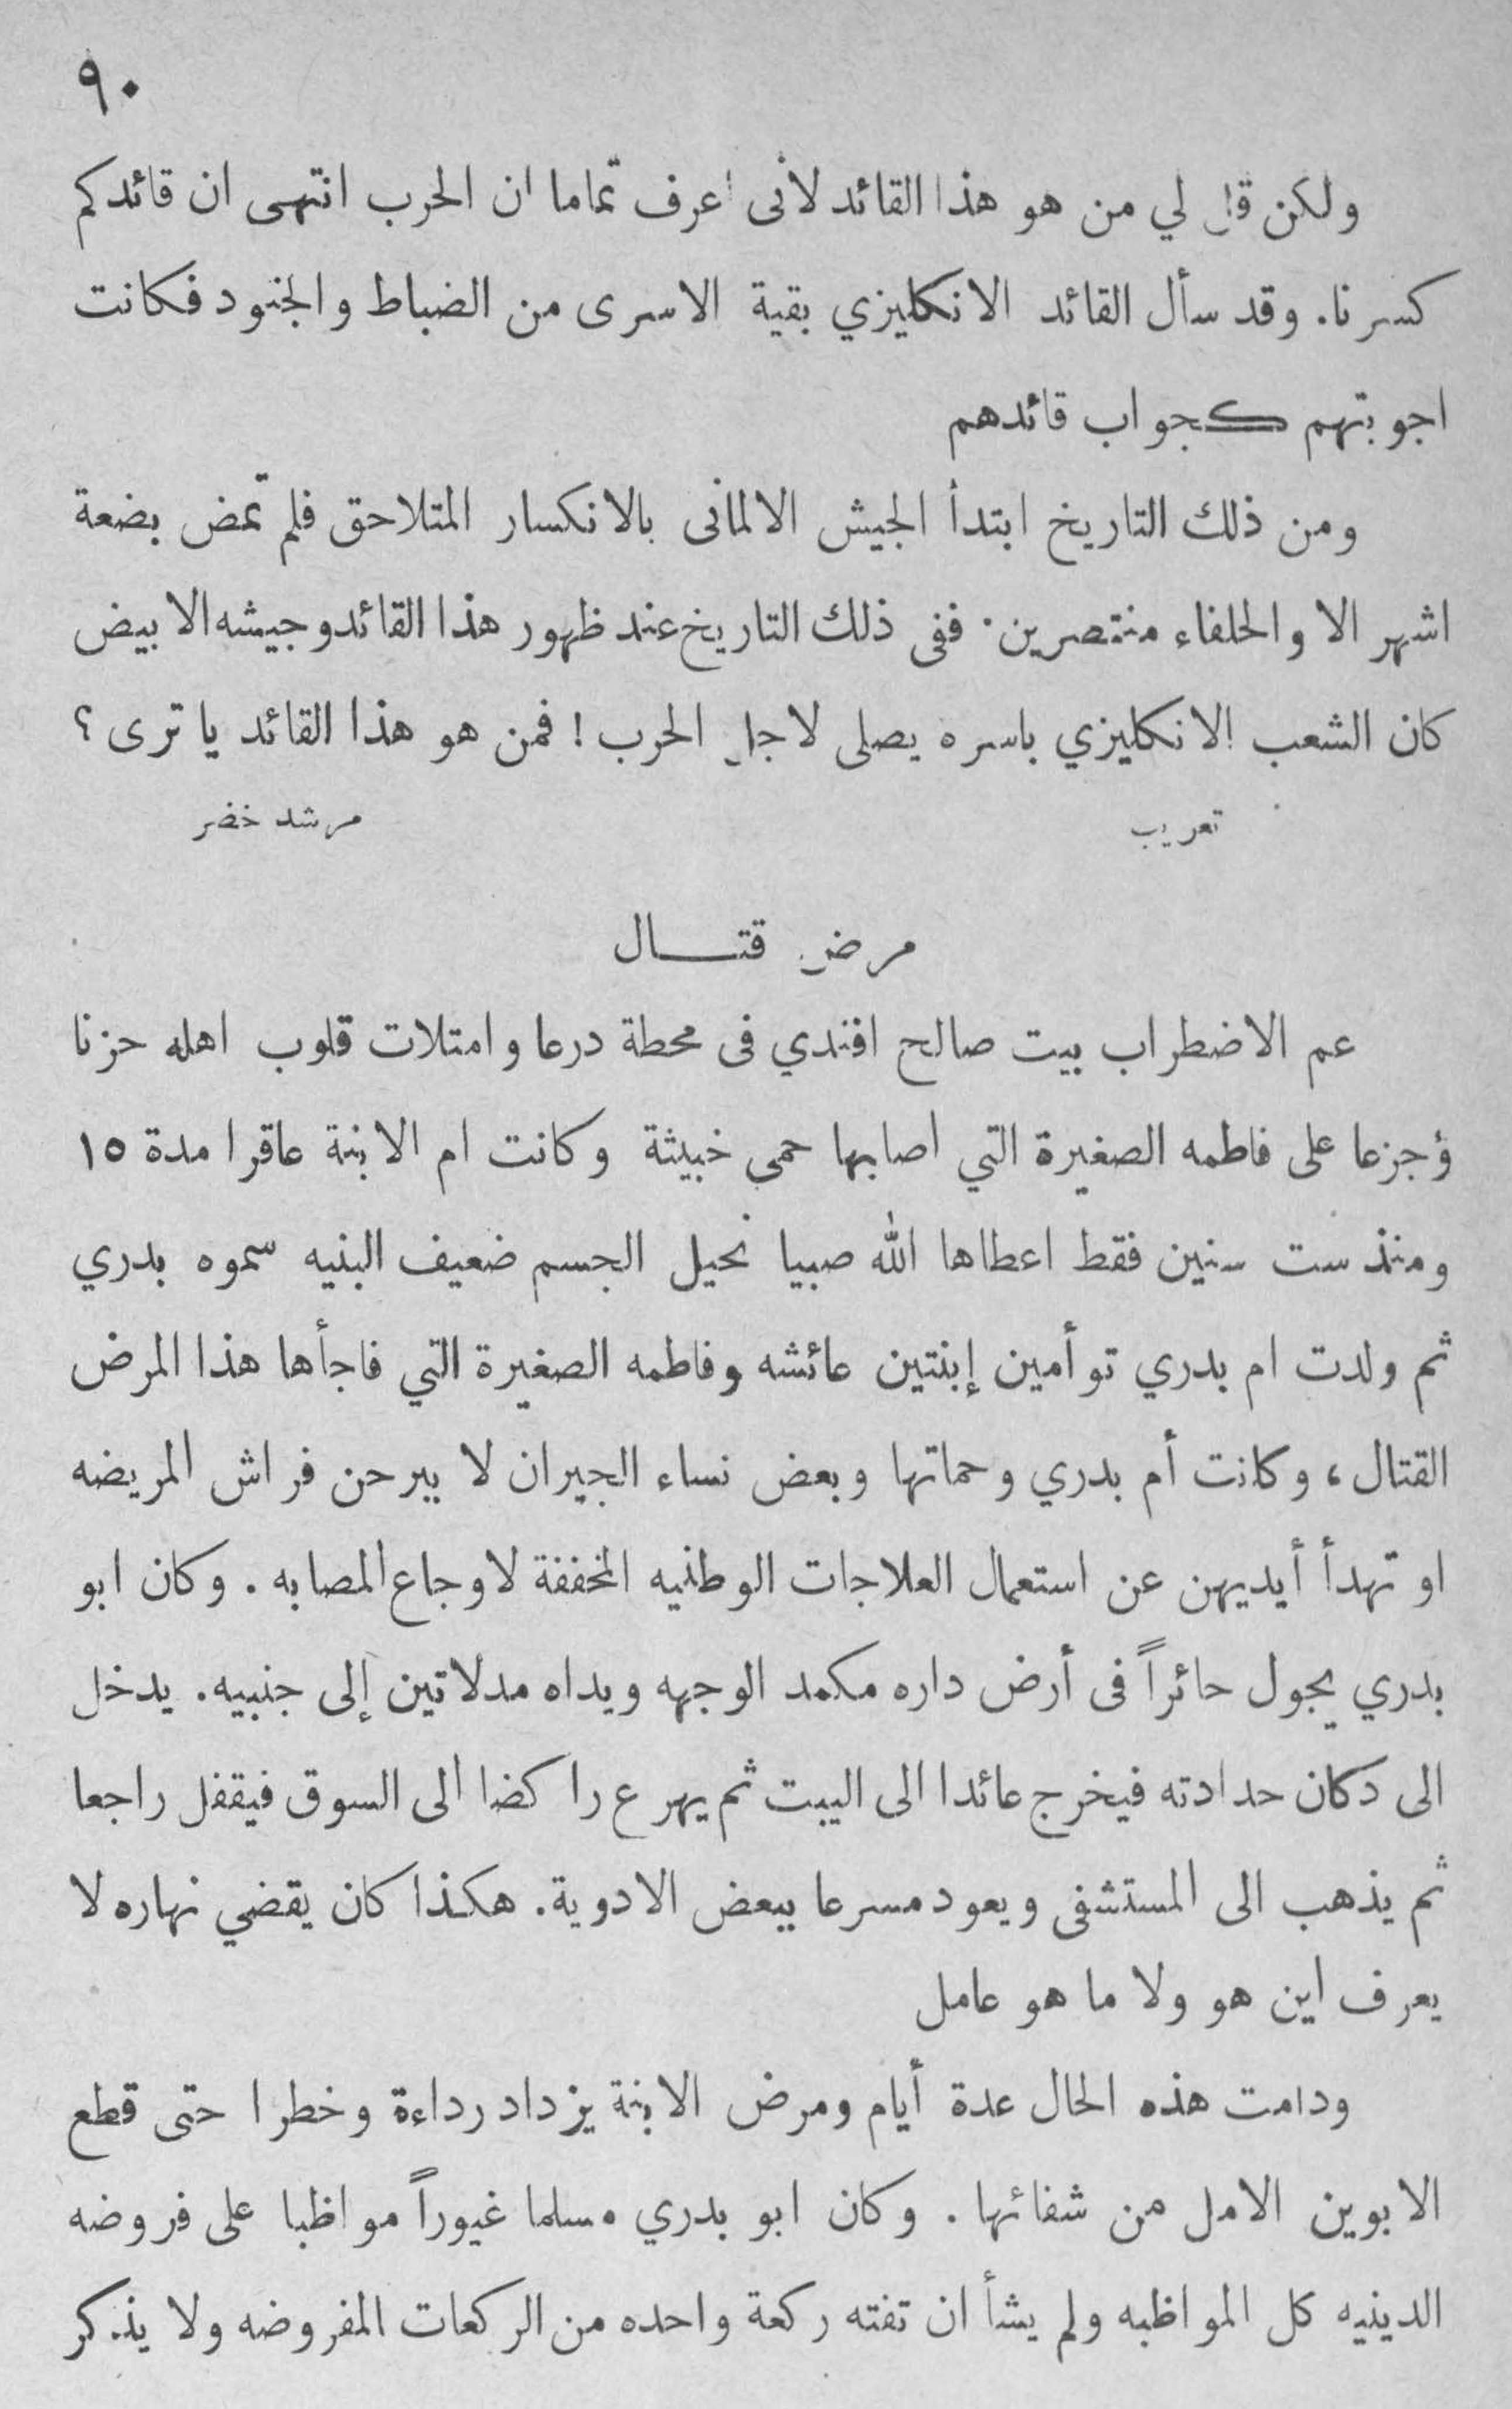 ٩٠
ولكن قل لي من هو هذا القائد لأنى اعرف تماما ان الحرب انتهى ان قائدكم
كسرنا. وقد سأل القائد الانكليزي بقية الاسرى من الضباط والجنود فكانت
اجوبتهم كجواب قائدهم
ومن ذلك التاريخ ابتدأ الجيش الالمانى بالانكسار المتلاحق فلم تمض بضعة
اشهر الا والحلفاء منتصرين. ففى ذلك التاريخ عند ظهور هذا القائد وجيشه الابيض
كان الشعب الانكليزي باسره يصلى لاجل الحرب! فمن هو هذا القائد يا ترى؟
تعريب مرشد خضر
مرض قتـــال
عم الاضطراب بيت صالح افندي فى محطة درعا وامتلات قلوب اهله حزنا
وُجزعا على فاطمه الصغيرة التي اصابها حمى خبيثة وكانت ام الابنة عاقرا مدة ١٥
ومنذ ست سنين فقط اعطاها الله صبيا نحيل الجسم ضعيف البنيه سموه بدري
ثم ولدت ام بدري توأمين إبنتين عائشه وفاطمه الصغيرة التي فاجأها هذا المرض
القتال، وكانت أم بدري وحماتها وبعض نساء الجيران لا يبرحن فراش المريضه
او تهدأ أيديهن عن استعمال العلاجات الوطنيه المخففة لاوجاع المصابه. وكان ابو
بدري يجول حائراً فى أرض داره مكمد الوجهه ويداه مدلاتين إلى جنبيه. يدخل
الى دكان حدادته فيخرج عائدا الى البيت ثم يهرع راكضا الى السوق فيقفل راجعا
ثم يذهب الى المستشفى ويعود مسرعا ببعض الادوية. هكذا كان يقضي نهاره لا
يعرف اين هو ولا ما هو عامل
ودامت هذه الحال عدة أيام ومرض الابنة يزداد رداءة وخطرا حتى قطع
الابوين الامل من شفائها. وكان ابو بدري مسلما غيوراً مواظبا على فروضه
الدينيه كل المواظبه ولم يشأ ان تفته ركعة واحده من الركعات المفروضه ولا يذكر